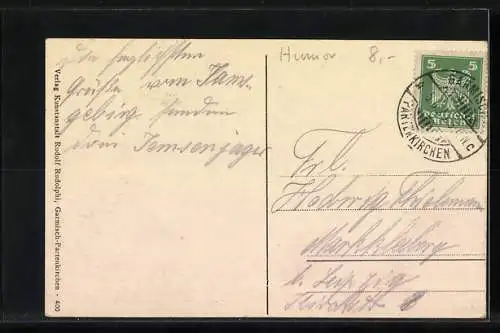 Die herzlichsten
Grüße vom Gams-
gebirg senden
vom Gemsenjäger
Humor 8,-
5 5
Deutsches Reich
GARMISCH-
PARTENKIRCHEN
C
Frl.
Hedwig Thielemann
Markkleeberg
b. Leipzig
Verlag Kunstanstalt Rudolf Rudolphi, Garmisch-Partenkirchen - 400